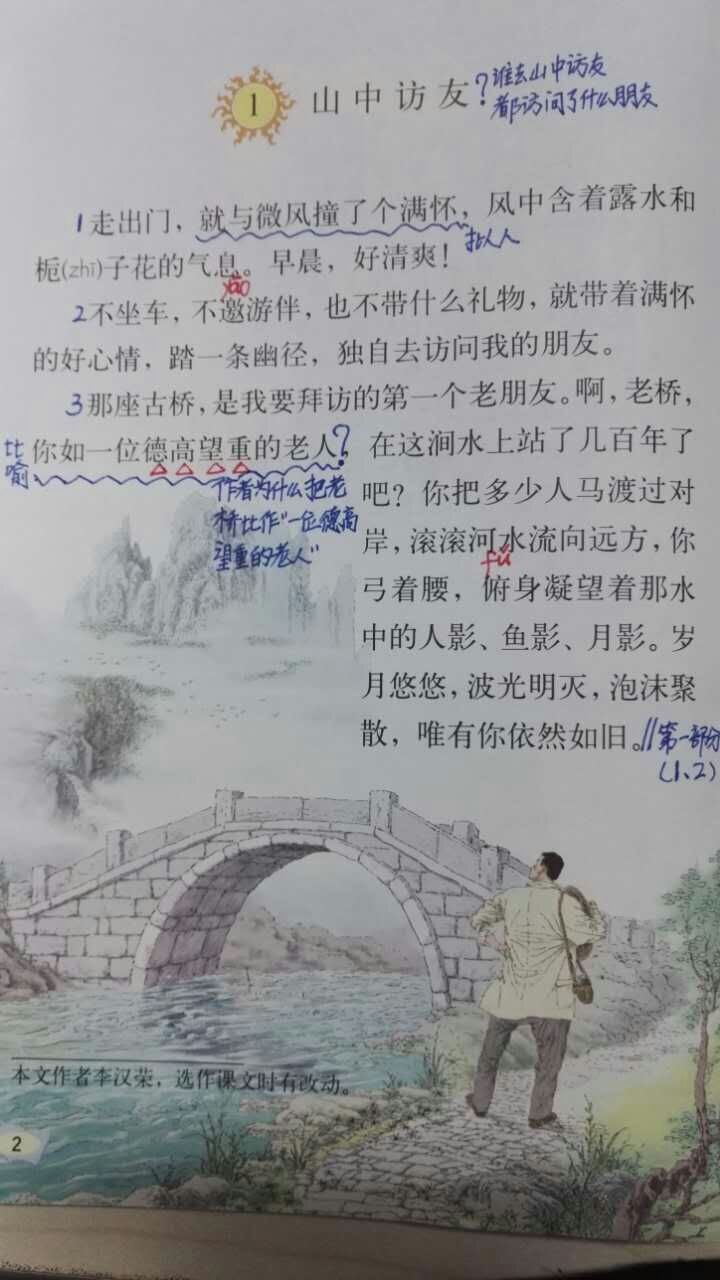 1 山中访友?
谁去山中访友
都访问了什么朋友
1走出门，就与微风撞了个满怀，风中含着露水和
拟人
栀(zhī)子花的气息。早晨，好清爽！
yāo
2不坐车，不邀游伴，也不带什么礼物，就带着满怀
的好心情，踏一条幽径，独自去访问我的朋友。
3那座古桥，是我要拜访的第一个老朋友。啊，老桥，
比喻
你如一位德高望重的老人?，在这涧水上站了几百年了
作者为什么把老
桥比作“一位德高
望重的老人”
吧？你把多少人马渡过对
岸，滚滚河水流向远方，你
fǔ
弓着腰，俯身凝望着那水
中的人影、鱼影、月影。岁
月悠悠，波光明灭，泡沫聚
散，唯有你依然如旧。//第一部分
(1、2)
本文作者李汉荣，选作课文时有改动。
2